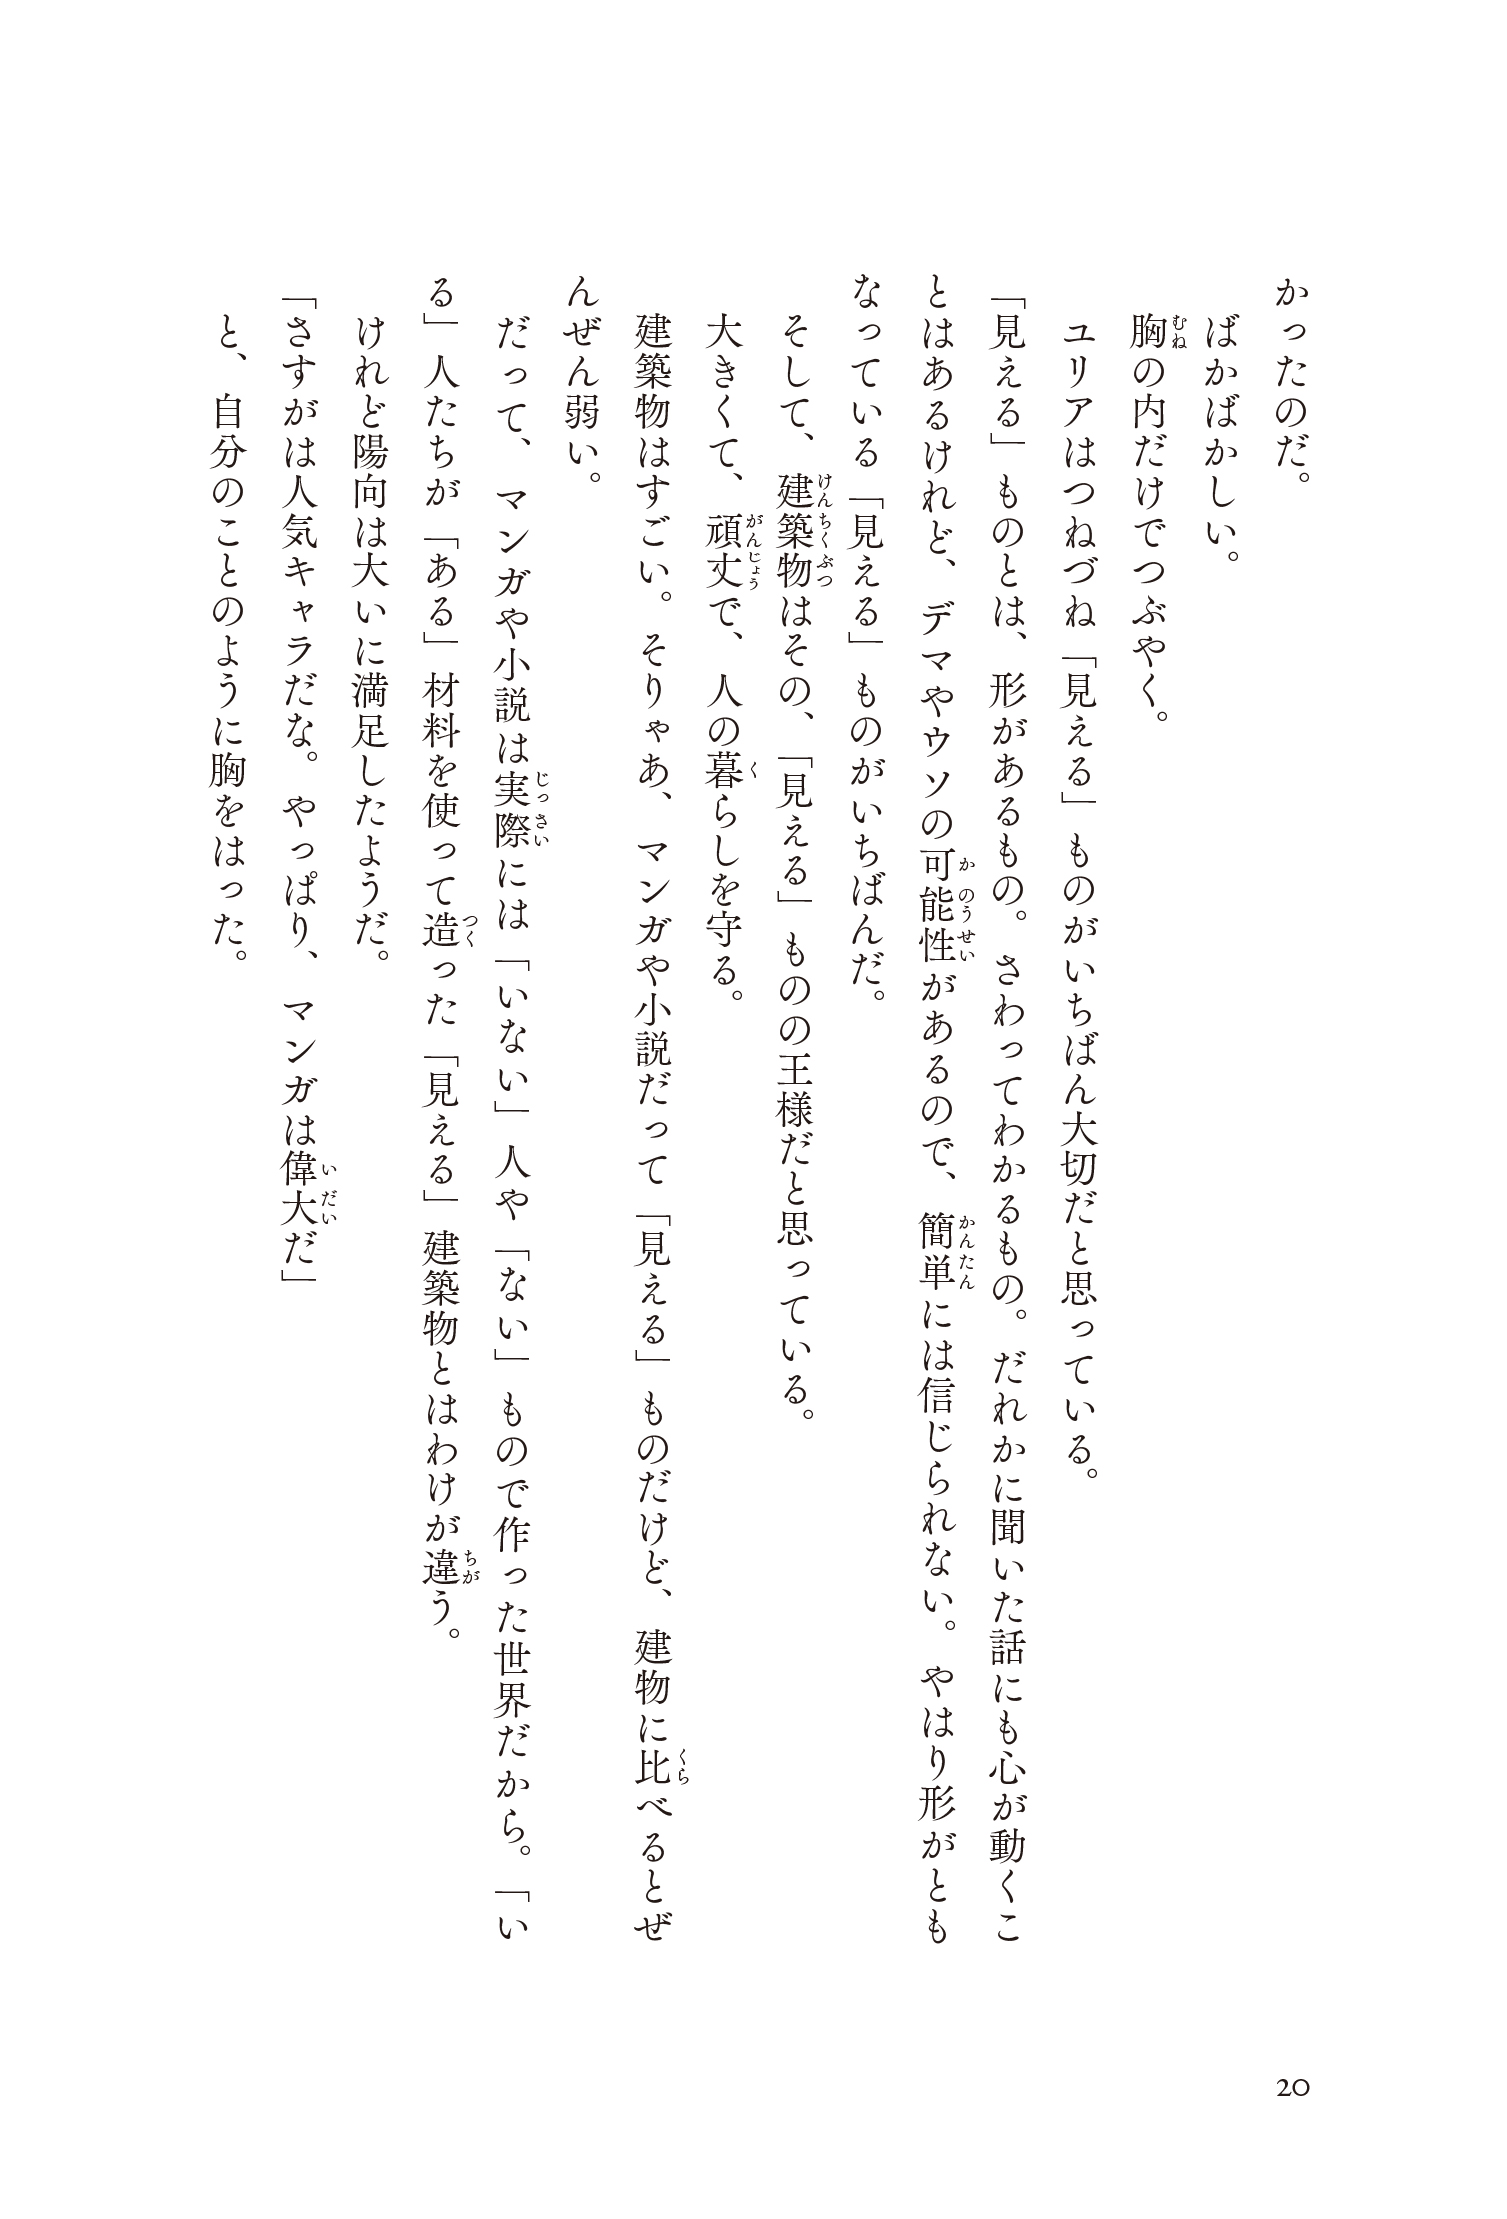 かったのだ。
　ばかばかしい。
　胸の内だけでつぶやく。
　ユリアはつねづね「見える」ものがいちばん大切だと思っている。
「見える」ものとは、形があるもの。さわってわかるもの。だれかに聞いた話にも心が動くこ
とはあるけれど、デマやウソの可能性があるので、簡単には信じられない。やはり形がとも
なっている「見える」ものがいちばんだ。
　そして、建築物はその、「見える」ものの王様だと思っている。
　大きくて、頑丈で、人の暮らしを守る。
　建築物はすごい。そりゃあ、マンガや小説だって「見える」ものだけど、建物に比べるとぜ
んぜん弱い。
　だって、マンガや小説は実際には「いない」人や「ない」もので作った世界だから。「い
る」人たちが「ある」材料を使って造った「見える」建築物とはわけが違う。
　けれど陽向は大いに満足したようだ。
「さすがは人気キャラだな。やっぱり、マンガは偉大だ」
　と、自分のことのように胸をはった。
20